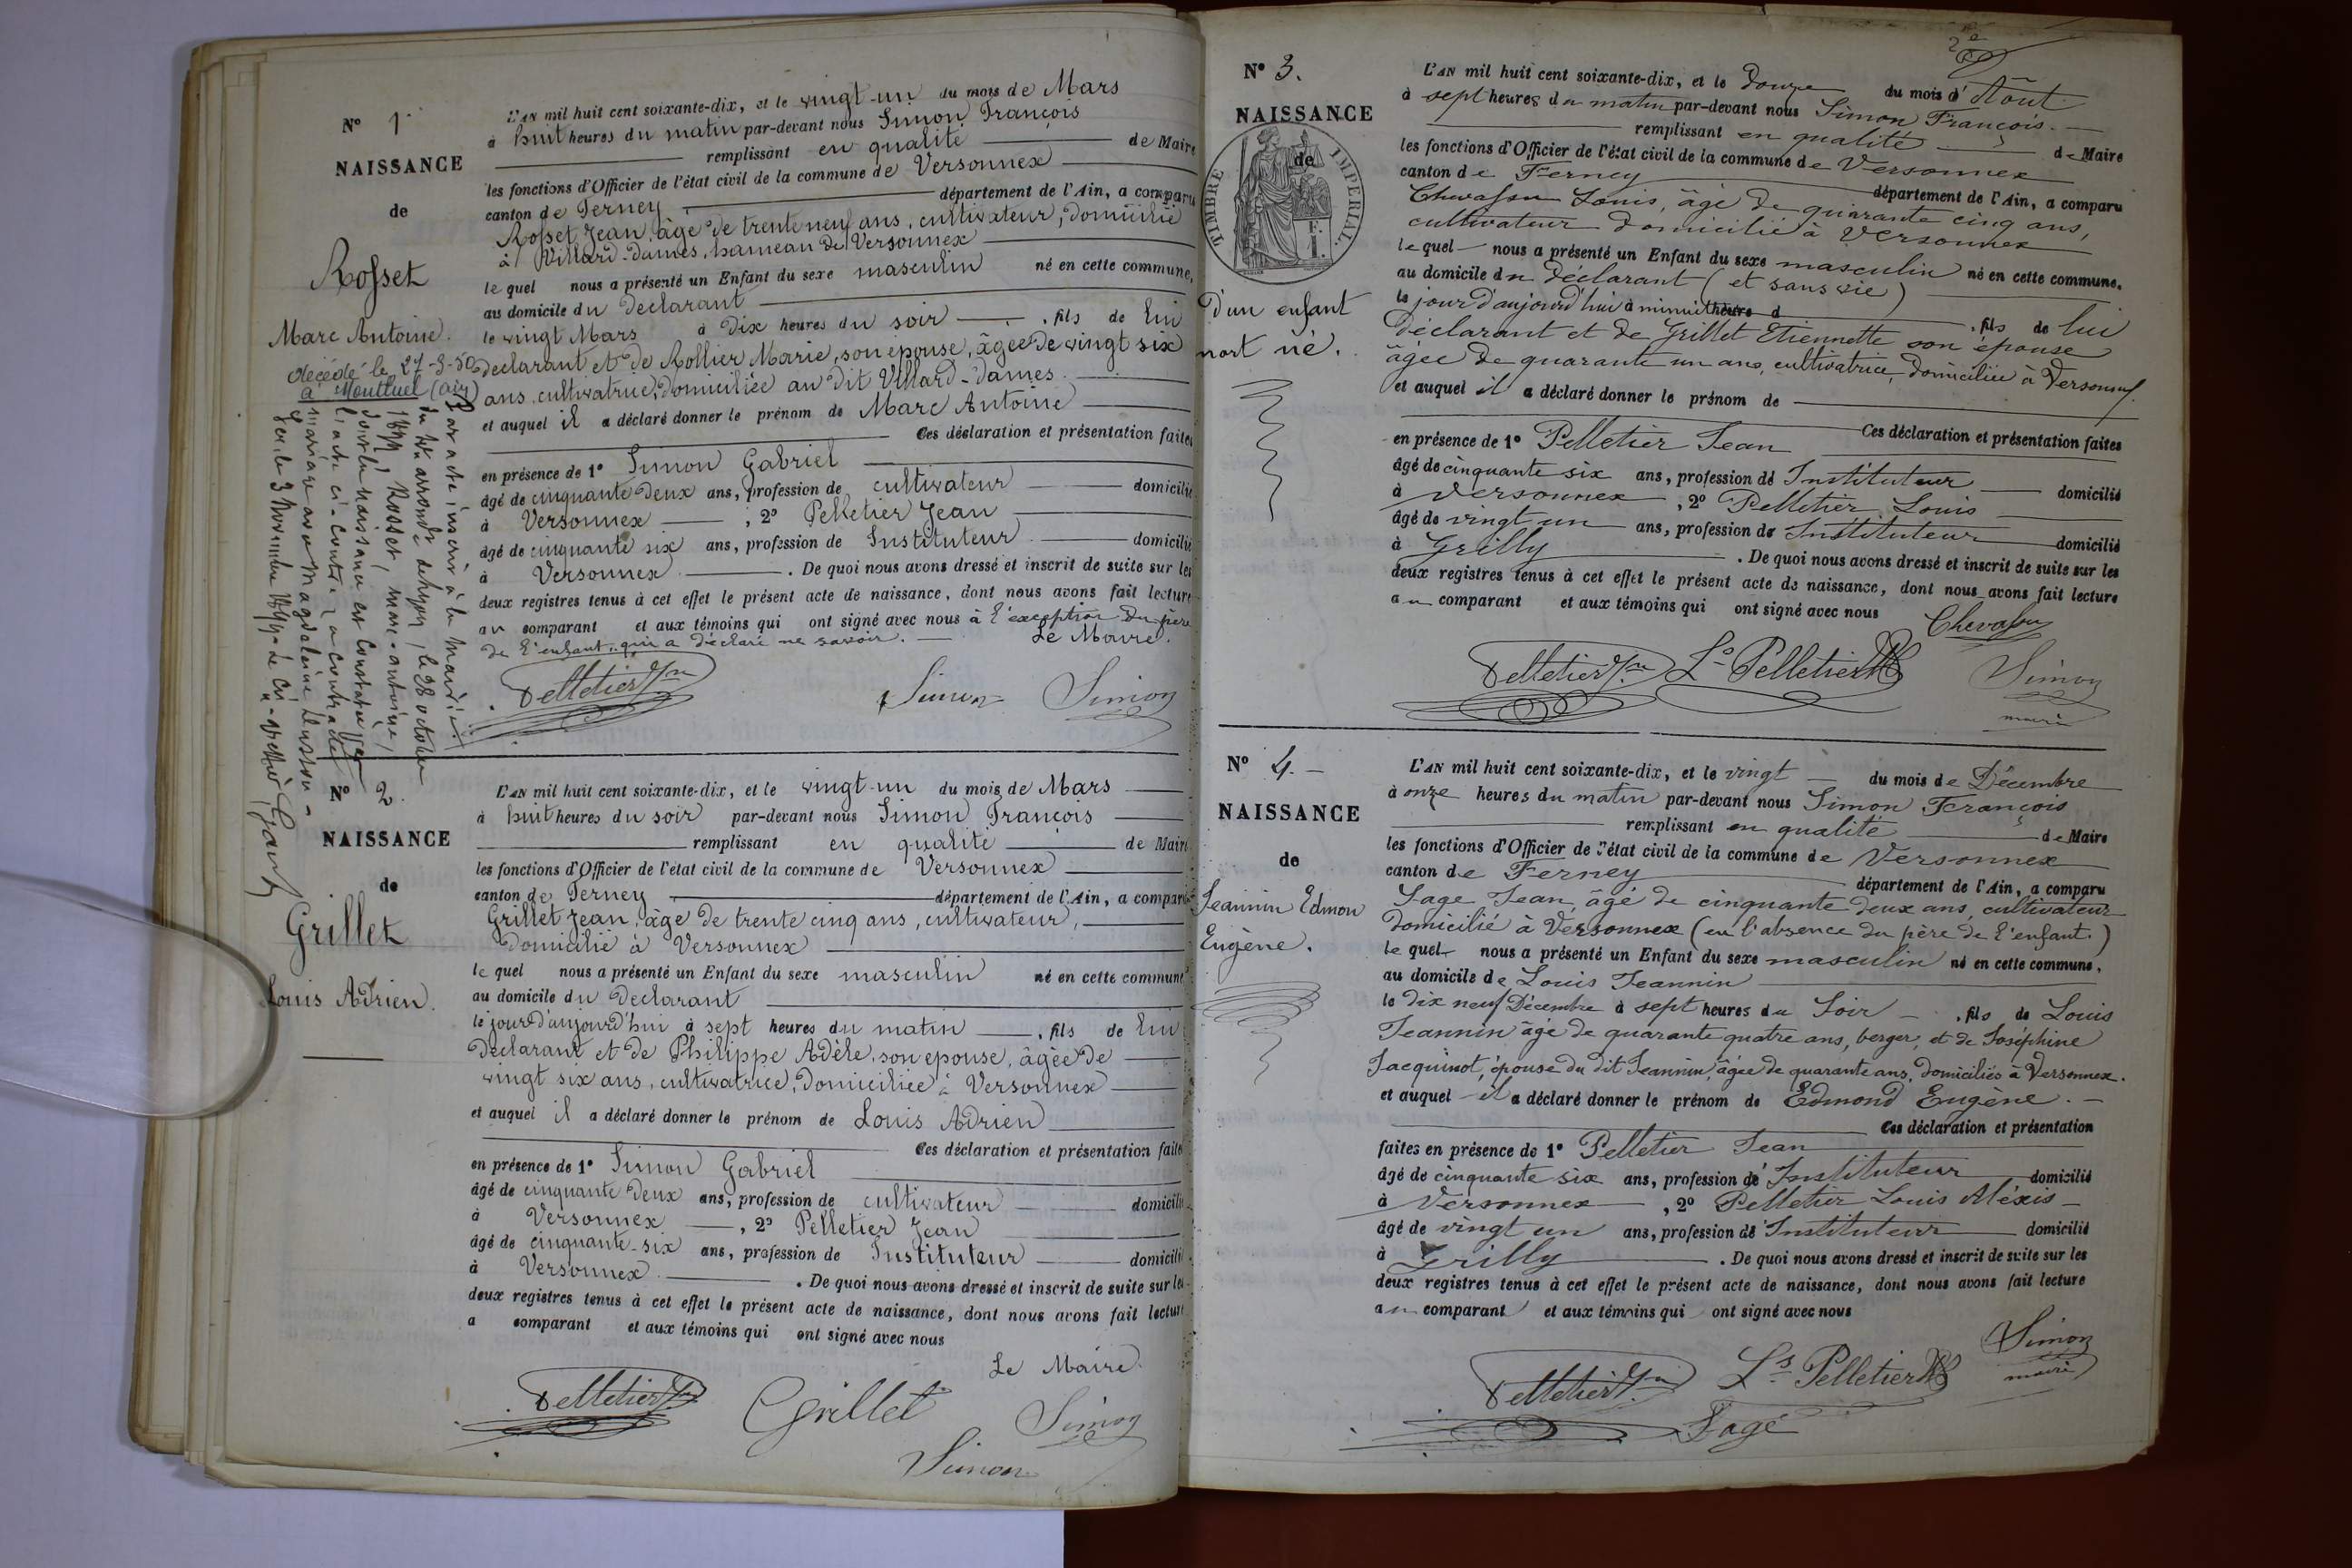 N° 1.
NAISSANCE
de
Rosset
Marc Antoine.
décédé le 27-3-50
à Montluel (Ain)
Par acte inscrit à la Mairie
du arrondt de Lyon, le 28 octobre
Rosset, Marc-antoine,
dont la naissance est constatée par
l'acte ci-contre, a contracté
mariage avec Magdeleine
Gex, le 3 Novembre
L'AN mil huit cent soixante-dix, et le vingt-un du mois de Mars
à huit heures du matin par-devant nous Simon François
remplissant en qualité de Maire
les fonctions d'Officier de l'état civil de la commune de Versonnex
canton de Ferney département de l'Ain, a comparu
Rosset Jean, âgé de trente neuf ans, cultivateur, domicilié
à Villard-Dames, hameau de Versonnex
lequel nous a présenté un Enfant du sexe masculin né en cette commune,
au domicile du déclarant
le vingt Mars à dix heures du soir, fils de lui
déclarant et de Rollier Marie, son épouse, âgée de vingt six
ans, cultivatrice, domiciliée au dit Villard-Dames.
et auquel il a déclaré donner le prénom de Marc Antoine
Ces déclaration et présentation faites
en présence de 1° Simon Gabriel
âgé de cinquante deux ans, profession de cultivateur domicilié
à Versonnex, 2° Pelletier Jean
âgé de cinquante six ans, profession de Instituteur domicilié
à Versonnex. De quoi nous avons dressé et inscrit de suite sur les
deux registres tenus à cet effet le présent acte de naissance, dont nous avons fait lecture
au comparant et aux témoins qui ont signé avec nous à l'exception du père
de l'enfant, qui a déclaré ne savoir. Le Maire.
Pelletier Jn Simon Simon
N° 2.
NAISSANCE
de
Grillet
Louis Adrien.
L'AN mil huit cent soixante-dix, et le vingt-un du mois de Mars
à huit heures du soir par-devant nous Simon François
remplissant en qualité de Maire
les fonctions d'Officier de l'état civil de la commune de Versonnex
canton de Ferney département de l'Ain, a comparu
Grillet Jean, âgé de trente cinq ans, cultivateur,
domicilié à Versonnex
lequel nous a présenté un Enfant du sexe masculin né en cette commune
au domicile du déclarant
le jour d'aujourd'hui à sept heures du matin, fils de lui
déclarant et de Philippe Adèle, son épouse, âgée de
vingt six ans, cultivatrice, domiciliée à Versonnex
et auquel il a déclaré donner le prénom de Louis Adrien
Ces déclaration et présentation faites
en présence de 1° Simon Gabriel
âgé de cinquante deux ans, profession de cultivateur domicilié
à Versonnex, 2° Pelletier Jean
âgé de cinquante-six ans, profession de Instituteur domicilié
à Versonnex. De quoi nous avons dressé et inscrit de suite sur les
deux registres tenus à cet effet le présent acte de naissance, dont nous avons fait lecture
a comparant et aux témoins qui ont signé avec nous
Le Maire.
Pelletier Jn Grillet Simon
Simon
2e
N° 3.
NAISSANCE
de
TIMBRE IMPERIAL.
d'un enfant
mort né.
L'AN mil huit cent soixante-dix, et le Douze du mois d'Août
à sept heures du matin par-devant nous Simon François.
remplissant en qualité de Maire
les fonctions d'Officier de l'état civil de la commune de Versonnex
canton de Ferney département de l'Ain, a comparu
Chevassu Louis, âgé de quarante cinq ans,
cultivateur domicilié à Versonnex
lequel nous a présenté un Enfant du sexe masculin né en cette commune.
au domicile du déclarant (et sans vie)
le jour d'aujourd'hui à minuit heures d, fils de lui
déclarant et de Grillet Etiennette son épouse
âgée de quarante un ans, cultivatrice, domiciliée à Versonnex.
et auquel il a déclaré donner le prénom de
Ces déclaration et présentation faites
en présence de 1° Pelletier Jean
âgé de cinquante six ans, profession de Instituteur domicilié
à Versonnex, 2° Pelletier Louis
âgé de vingt un ans, profession de Instituteur domicilié
à Grilly. De quoi nous avons dressé et inscrit de suite sur les
deux registres tenus à cet effet le présent acte de naissance, dont nous avons fait lecture
au comparant et aux témoins qui ont signé avec nous
Chevassu
Pelletier Jn Ls Pelletier Simon
maire
N° 4.
NAISSANCE
de
Jeannin Edmon
Eugène.
L'AN mil huit cent soixante-dix, et le vingt du mois de Décembre
à onze heures du matin par-devant nous Simon François
remplissant en qualité de Maire
les fonctions d'Officier de l'état civil de la commune de Versonnex
canton de Ferney département de l'Ain, a comparu
Sage Jean, âgé de cinquante deux ans, cultivateur
domicilié à Versonnex (en l'absence du père de l'enfant.)
lequel nous a présenté un Enfant du sexe masculin né en cette commune,
au domicile de Louis Jeannin
le dix neuf Décembre à sept heures du Soir, fils de Louis
Jeannin âgé de quarante quatre ans, berger, et de Joséphine
Jacquinot, épouse du dit Jeannin, âgée de quarante ans, domiciliés à Versonnex.
et auquel il a déclaré donner le prénom de Edmond Eugène.
Ces déclaration et présentation
faites en présence de 1° Pelletier Jean
âgé de cinquante six ans, profession de Instituteur domicilié
à Versonnex, 2° Pelletier Louis Aléxis
âgé de vingt un ans, profession de Instituteur domicilié
à Grilly. De quoi nous avons dressé et inscrit de suite sur les
deux registres tenus à cet effet le présent acte de naissance, dont nous avons fait lecture
au comparant et aux témoins qui ont signé avec nous
Simon
maire
Pelletier Jn Ls Pelletier
Sage